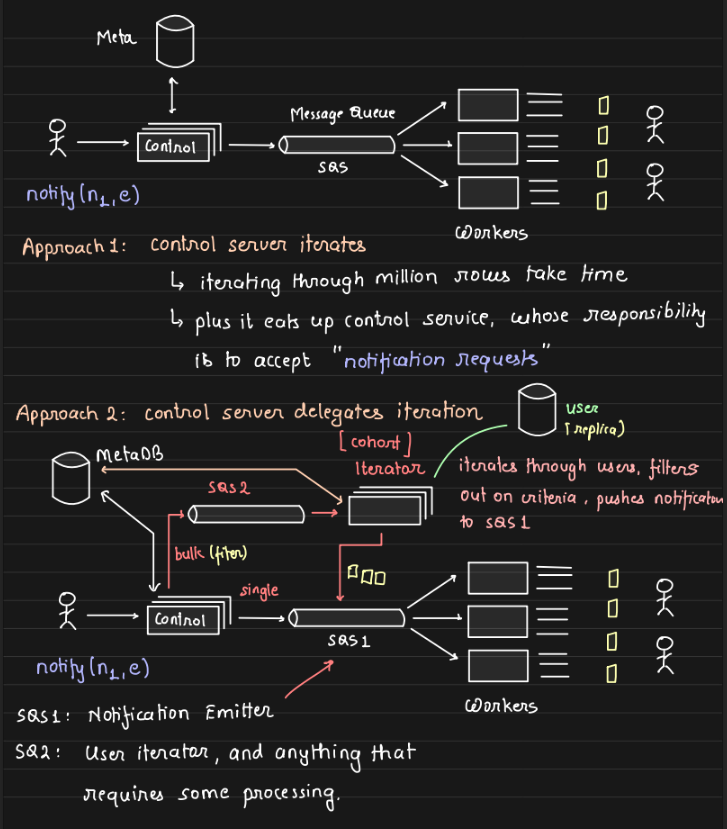 Meta
Message Queue
Control
SQS
notify(n1,e)
Workers
Approach 1: Control server iterates
↳ iterating through million rows take time
↳ plus it eats up control service, whose responsibility
is to accept "notification requests"
Approach 2: Control server delegates iteration
user
[replica)
MetaDB
[cohort]
Iterator
iterates through users, filters
out on criteria, pushes notification
to SQS1
SQS2
bulk (filter)
single
Control
SQS1
notify(n1,e)
Workers
SQS1: Notification Emitter
SQ2: User iterator, and anything that
requires some processing.